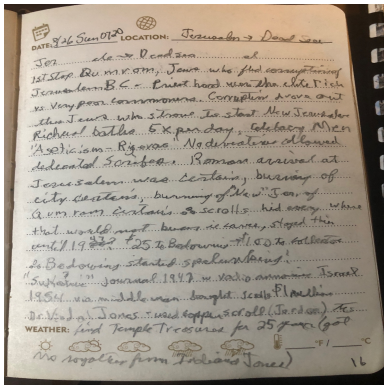 DATE: 8/26 Sun 0720 LOCATION: Jerusalem → Dead Sea
Jer → Dead Sea
1st Stop Qumrom, Jews who fled corruption of
Jerusalem BC - Priest hood was the elite Rich
vs very poor commoners. Corruption drove out
the Jews who strove to start New Jerusalem
Ritual baths 5x per day, Celibacy Men
"Asceticism - Rigorous" No derivatives allowed
dedicated Scribes. Roman arrival at
Jerusalem was certain, burning of
city certain, burning of "New" Jer, of
Qumram certain so scrolls hid every where
that would not burn, stayed there
until 19 $25 to Bedouins $100 to collector
so Bedouins started spelunking!
Journal 1947 radio announce Israel
1954 via middle man bought scrolls $1 million
Dr Jones - used copper scroll (Jordan)
WEATHER: find Temple Treasures for 25 years (got
°F/°C
no royalties from Indiana Jones)
16